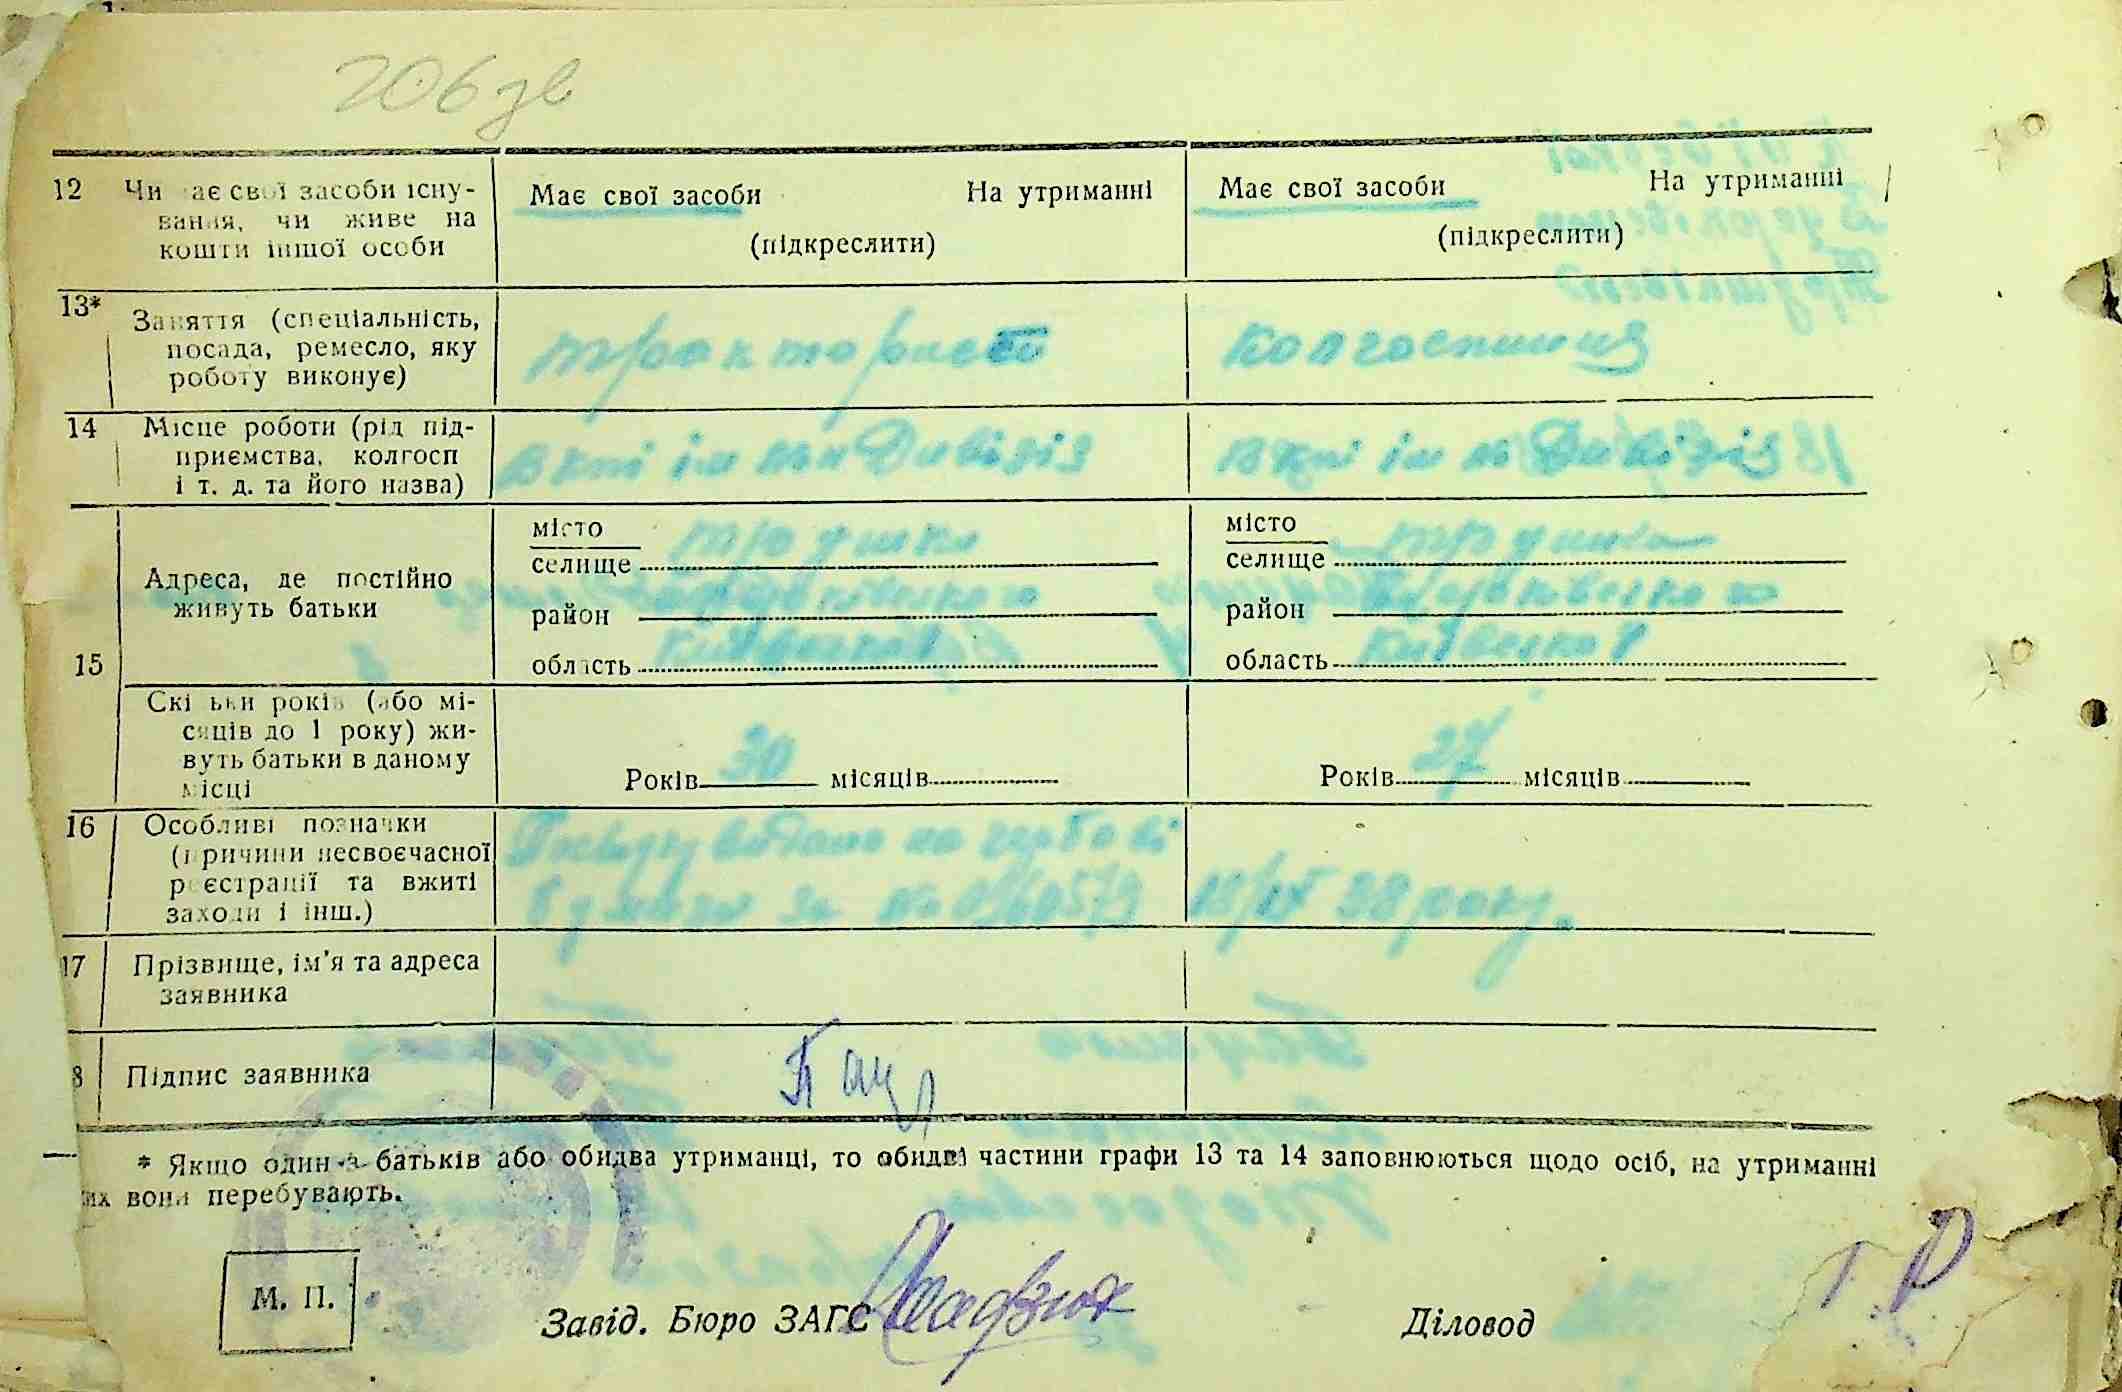 206 зв
12 Чи має свої засоби існу-
вання, чи живе на
кошти іншої особи
Має свої засоби На утриманні
(підкреслити)
Має свої засоби На утриманні
(підкреслити)
13* Заняття (спеціальність,
посада, ремесло, яку
роботу виконує)
тракторист
колгоспниця
14 Місце роботи (рід під-
приємства, колгосп
і т. д. та його назва)
Дивізія
Дивізія
15 Адреса, де постійно
живуть батьки
місто
селище Трушки
район
область Київської
місто
селище Трушки
район
область Київської
Скільки років (або мі-
сяців до 1 року) жи-
вуть батьки в даному
місці
Років 30 місяців
Років 27 місяців
16 Особливі позначки
(причини несвоєчасної
реєстрації та вжиті
заходи і інш.)
видано на гербові
за № 18/IX 38 року.
17 Прізвище, ім'я та адреса
заявника
8 Підпис заявника
* Якщо один з батьків або обидва утриманці, то обидві частини графи 13 та 14 заповнюються щодо осіб, на утриманні
их вони перебувають.
М. П.
Завід. Бюро ЗАГС
Діловод